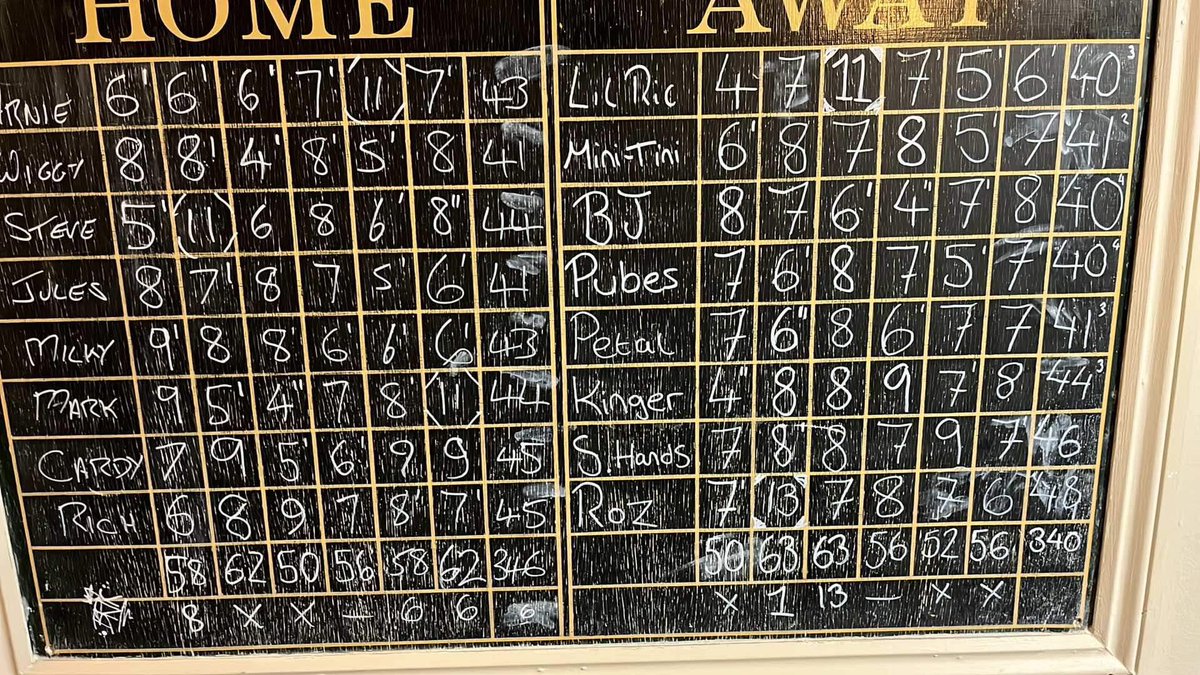 HOME AWAY
ARNIE 6' 6' 6' 7' 11 7' 43 LIL RIC 4 7 11 7' 5' 6' 40 3
WIGGY 8 8' 4' 8' 5' 8 41 Mini-Tini 6' 8 7 8 5' 7 41 2
STEVE 5' 11 6 8 6' 8" 44 BJ 8 7 6' 4" 7' 8 40
JULES 8 7' 8 7 5' 6' 41 Pubes 7 6' 8 7 5' 7' 40
MILKY 9' 8 8 6' 6' 6' 43 Petal 7 6" 8 6' 7 7 41 3
MARK 9 5' 4" 7 8' 11 44 Kinger 4" 8 8 9 7' 8 44 3
CARDY 7 9 5' 6' 9 9 45 S. Hands 7 8' 8 7 9 7 46
RICH 6' 8 9 7 8' 7' 45 Roz 7 13 7 8 7 6' 48
58 62 50 56 58 62 346 50 63 63 56 52 56 340
8 X X – 6 6 6 X 1 13 – X X